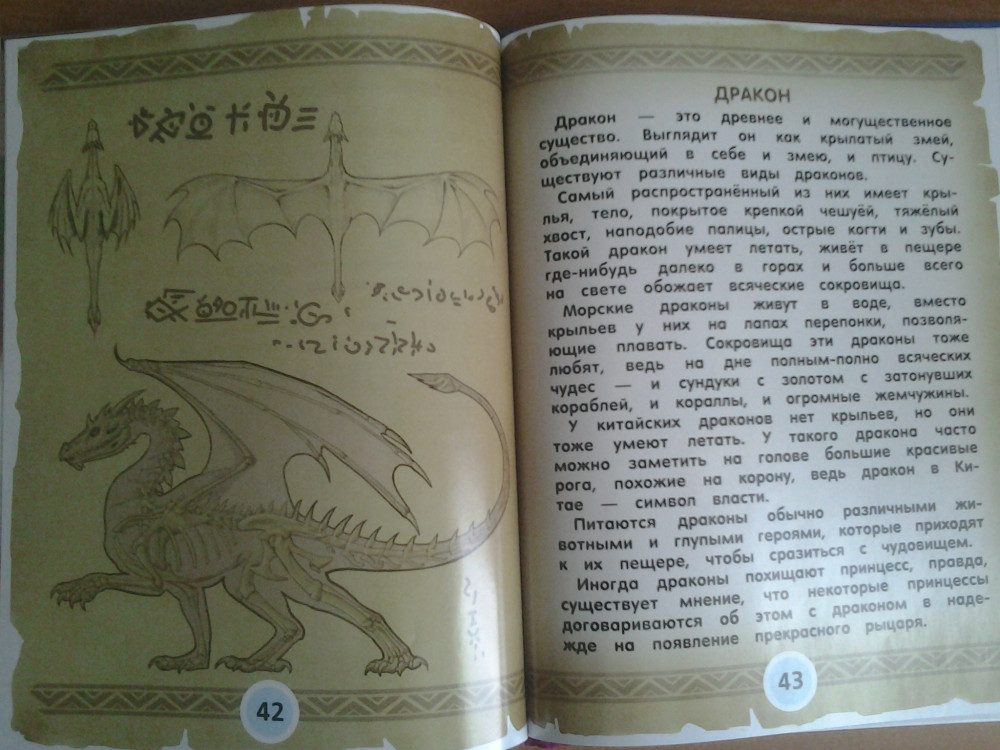 42
ДРАКОН
Дракон — это древнее и могущественное
существо. Выглядит он как крылатый змей,
объединяющий в себе и змею, и птицу. Су-
ществуют различные виды драконов.
Самый распространённый из них имеет кры-
лья, тело, покрытое крепкой чешуёй, тяжёлый
хвост, наподобие палицы, острые когти и зубы.
Такой дракон умеет летать, живёт в пещере
где-нибудь далеко в горах и больше всего
на свете обожает всяческие сокровища.
Морские драконы живут в воде, вместо
крыльев у них на лапах перепонки, позволя-
ющие плавать. Сокровища эти драконы тоже
любят, ведь на дне полным-полно всяческих
чудес — и сундуки с золотом с затонувших
кораблей, и кораллы, и огромные жемчужины.
У китайских драконов нет крыльев, но они
тоже умеют летать. У такого дракона часто
можно заметить на голове большие красивые
рога, похожие на корону, ведь дракон в Ки-
тае — символ власти.
Питаются драконы обычно различными жи-
вотными и глупыми героями, которые приходят
к их пещере, чтобы сразиться с чудовищем.
Иногда драконы похищают принцесс, правда,
существует мнение, что некоторые принцессы
договариваются об этом с драконом в наде-
жде на появление прекрасного рыцаря.
43